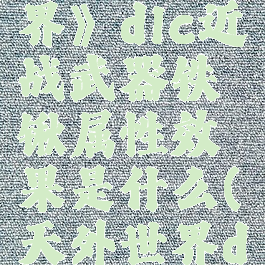 界》dlc近
战武器铁
锹属性效
果是什么(
天外世界d